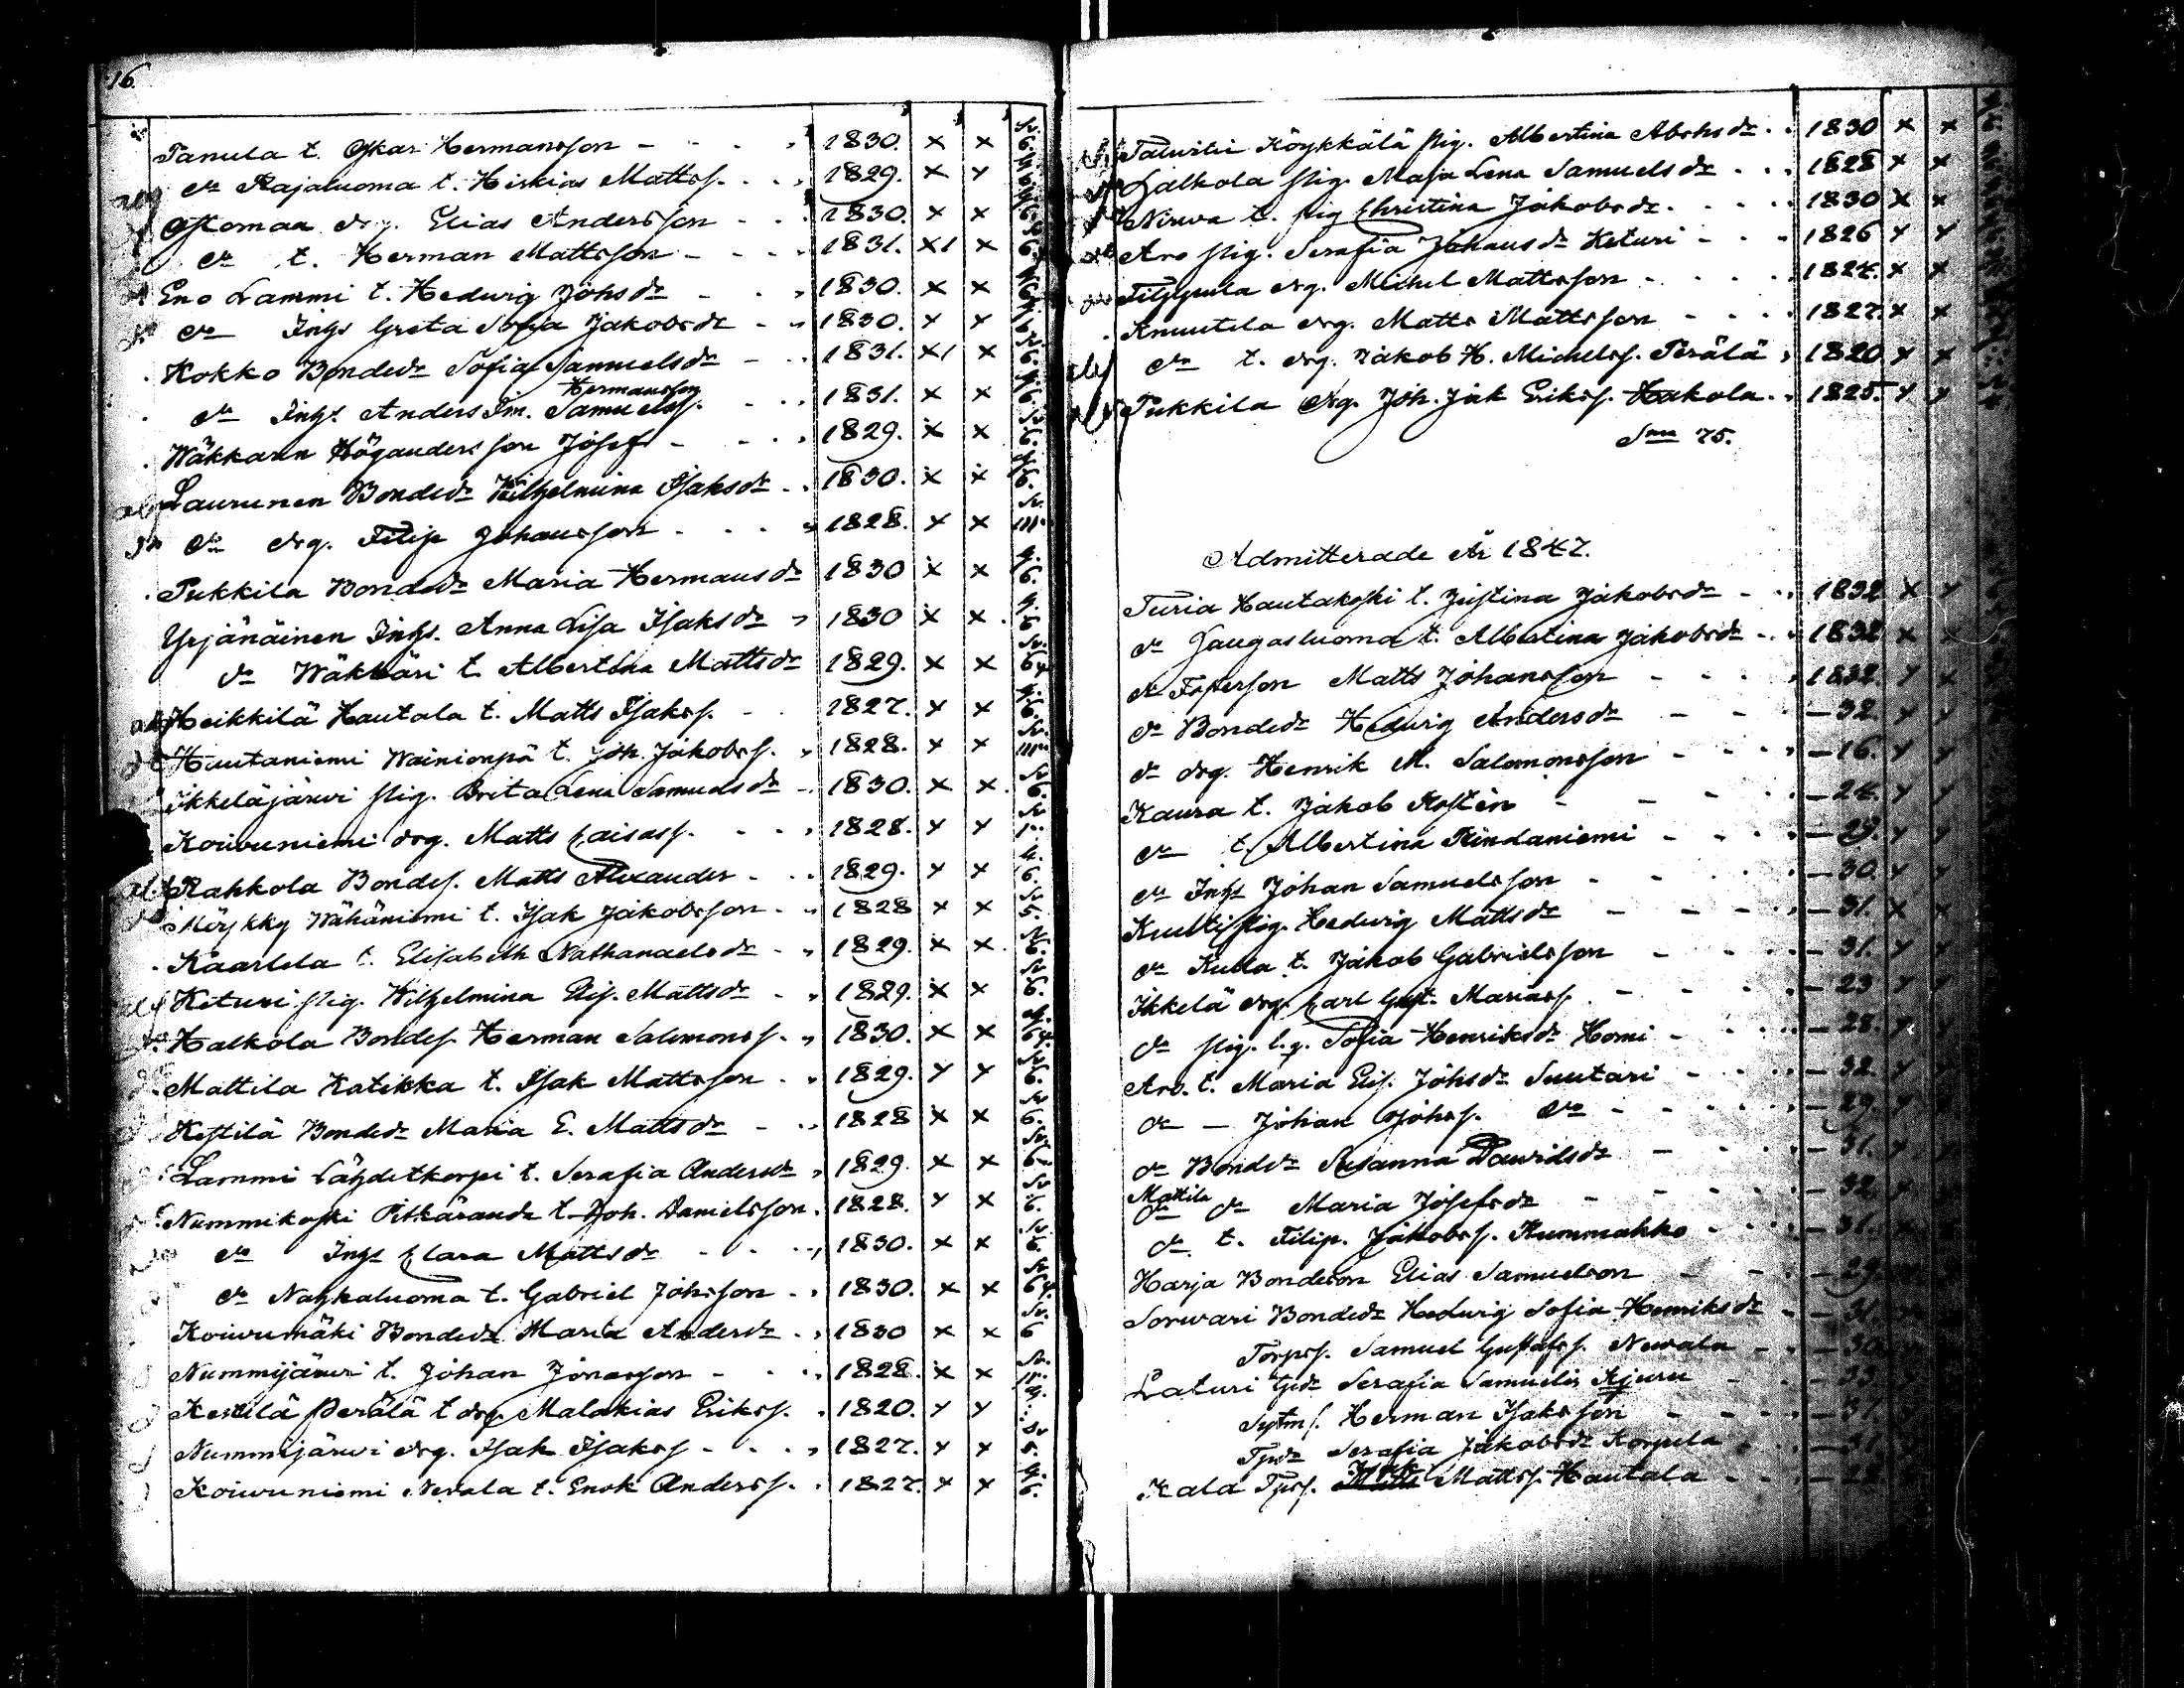 16.
Panula t. Oskar Hermansson - - - 1830. x x 6.
do Rajaluoma t. Hiskias Mattss. - - 1829. x x
Östomaa drg. Elias Andersson - - 1830. x x
do t. Herman Mattsson - - - 1831. x1 x 6.
Eno Lammi t. Hedwig Johsdr - - 1830. x x
do Inhs Greta Sofia Jakobsdr - - 1830. x x
Kokko Bondedr Sofia Samuelsdr - - 1831. x1 x 6.
Hermansson
do Inhs. Anders Im. Samuelss. - - 1831. x x 6.
Wäkkärn Högandersson Josef - - - 1829. x x 6.
Laurunen Bondedr Wilhelmina Isaksdr - - 1830. x x 6.
do drg. Filip Johansson - - - 1828. x x
Pukkila Bondedr Maria Hermansdr 1830 x x 6.
Yrjänäinen Inhs. Anna Lisa Isaksdr 1830 x x 5.
do Wäkkäri t. Albertina Mattsdr 1829. x x 6
Heikkilä Hautala t. Matts Isakss. - 1827. x x 6.
Hautaniemi Wainionpä t. Joh. Jakobss. 1828. x x
Ikkeläjärwi pig. Brita Lena Samuelsdr - 1830. x x 6.
Koiwuniemi drg. Matts Caisass. - - 1828. x x
Rahkola Bondes. Matts Alexander - - 1829. x x 6.
Möykky Wähäniemi t. Isak Jakobsson - - 1828 x x 5.
Kaarlela t. Elisabeth Nathanaelsdr - - 1829. x x 6.
Keturi pig. Wilhelmina Elis. Mattsdr - - 1829. x x 6.
Halkola Bondes. Herman Salomonss. - 1830. x x
Mattila Katikka t. Isak Mattsson - - 1829. x x 6.
Kestilä Bondedr Maria E. Mattsdr - - 1828 x x 6.
Lammi Lähdetkorpi t. Serafia Andersdr 1829. x x
Nummikoski Pitkäranda t. Joh. Danielsson. 1828. x x 6.
do Inhs Clara Mattsdr - - - 1830. x x 6.
do Nahkaluoma t. Gabriel Johsson - - 1830. x x
Koiwumäki Bondedr Maria Andersdr - - 1830 x x 6
Nummijärwi t. Johan Jonasson - - - 1828. x x
Kestilä Perälä t. drg. Malakias Erikss. - 1820. x x
Nummijärwi drg. Isak Isakss - - - 1827. x x 5.
Koiwuniemi Nerala t. Enok Anderss. - 1827. x x 6.
Talwitie Köykkälä pig. Albertina Abrhsdr - - 1830 x x
Halkola pig. Maja Lena Samuelsdr - - - 1828 x x
Nirwa t. pig Christina Jakobsdr - - - 1830 x x
Aro pig. Serafia Johansdr Keturi - - - 1826 x x
Filppula drg. Michel Mattsson - - - 1824. x x
Knuutila drg. Matts Mattsson - - - 1827. x x
do t. drg. Jakob H. Michelss. Perälä 1820. x x
Pukkila drg. Joh. Jak Erikss. Hakola - 1825. x x
Sma 75.
Admitterade År 1847.
Turia Hautakoski t. Justina Jakobsdr - - 1832 x x
do Jaugasluoma t. Albertina Jakobsdr - - 1832 x x
do Matts Johansson - - - 1832. x x
do Bondedr Hedwig Andersdr - - - 32. x x
do drg. Henrik M. Salomonsson - - - 16. x x
Kaura t. Jakob Rostén - - - 24. x x
do t. Albertina Rindaniemi - - - 29. x x
do Inhs Johan Samuelsson - - - 30. x x
Kultti pig. Hedwig Mattsdr - - - 31. x x
do Kulla t. Jakob Gabrielsson - - - 31. x x
Ikkelä drg. Carl Gust. Mariass. - - - 23 x x
do pig. l.g. Sofia Henriksdr Homi - - - 28. x x
Aro. t. Maria Elis. Johsdr Suutari - - - 32. x
do - Johan Johss. do - - - 29. x
do Bondedr Susanna Dawidsdr - - - 31. x
Mattila
do do Maria Josefsdr - - - 32. x
do t. Filip. Jakobss. Kummahko - - - 31.
Harja Bondeson Elias Samuelson - - - 29.
Sorwari Bondedr Hedwig Sofia Henriksdr - - 31.
Torps. Samuel Gustafss. Newala - - 30
Laturi Tpdr Serafia Samuelsdr Kjuru - - 33.
Sytms. Herman Isaksson - - - 31
Tpdr Serafia Jakobsdr Korpela - - 31.
Isak
Kala Tps. Matts Mattss. Hautala - - 28.